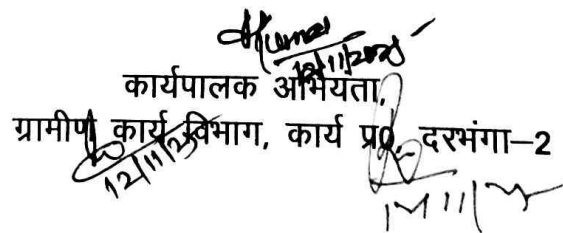 Kumar
12/11/2025
कार्यपालक अभियंता,
ग्रामीण कार्य विभाग, कार्य प्र0, दरभंगा–2
12/11/25